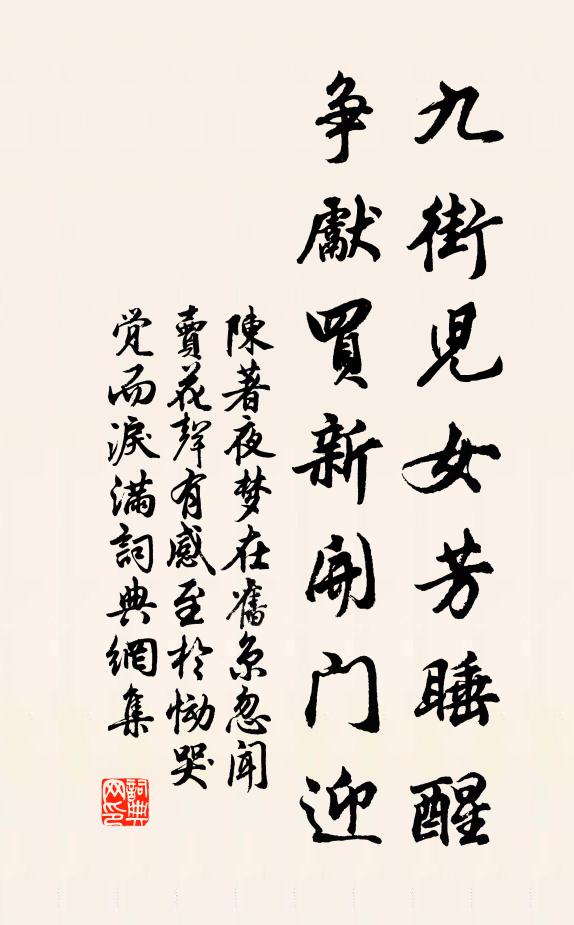 九街児女芳睡醒
争獻買新開门迎
陳著夜梦在舊京忽闻
賣花聲有感至於恸哭
觉而淚满詞典網集
詞典网印